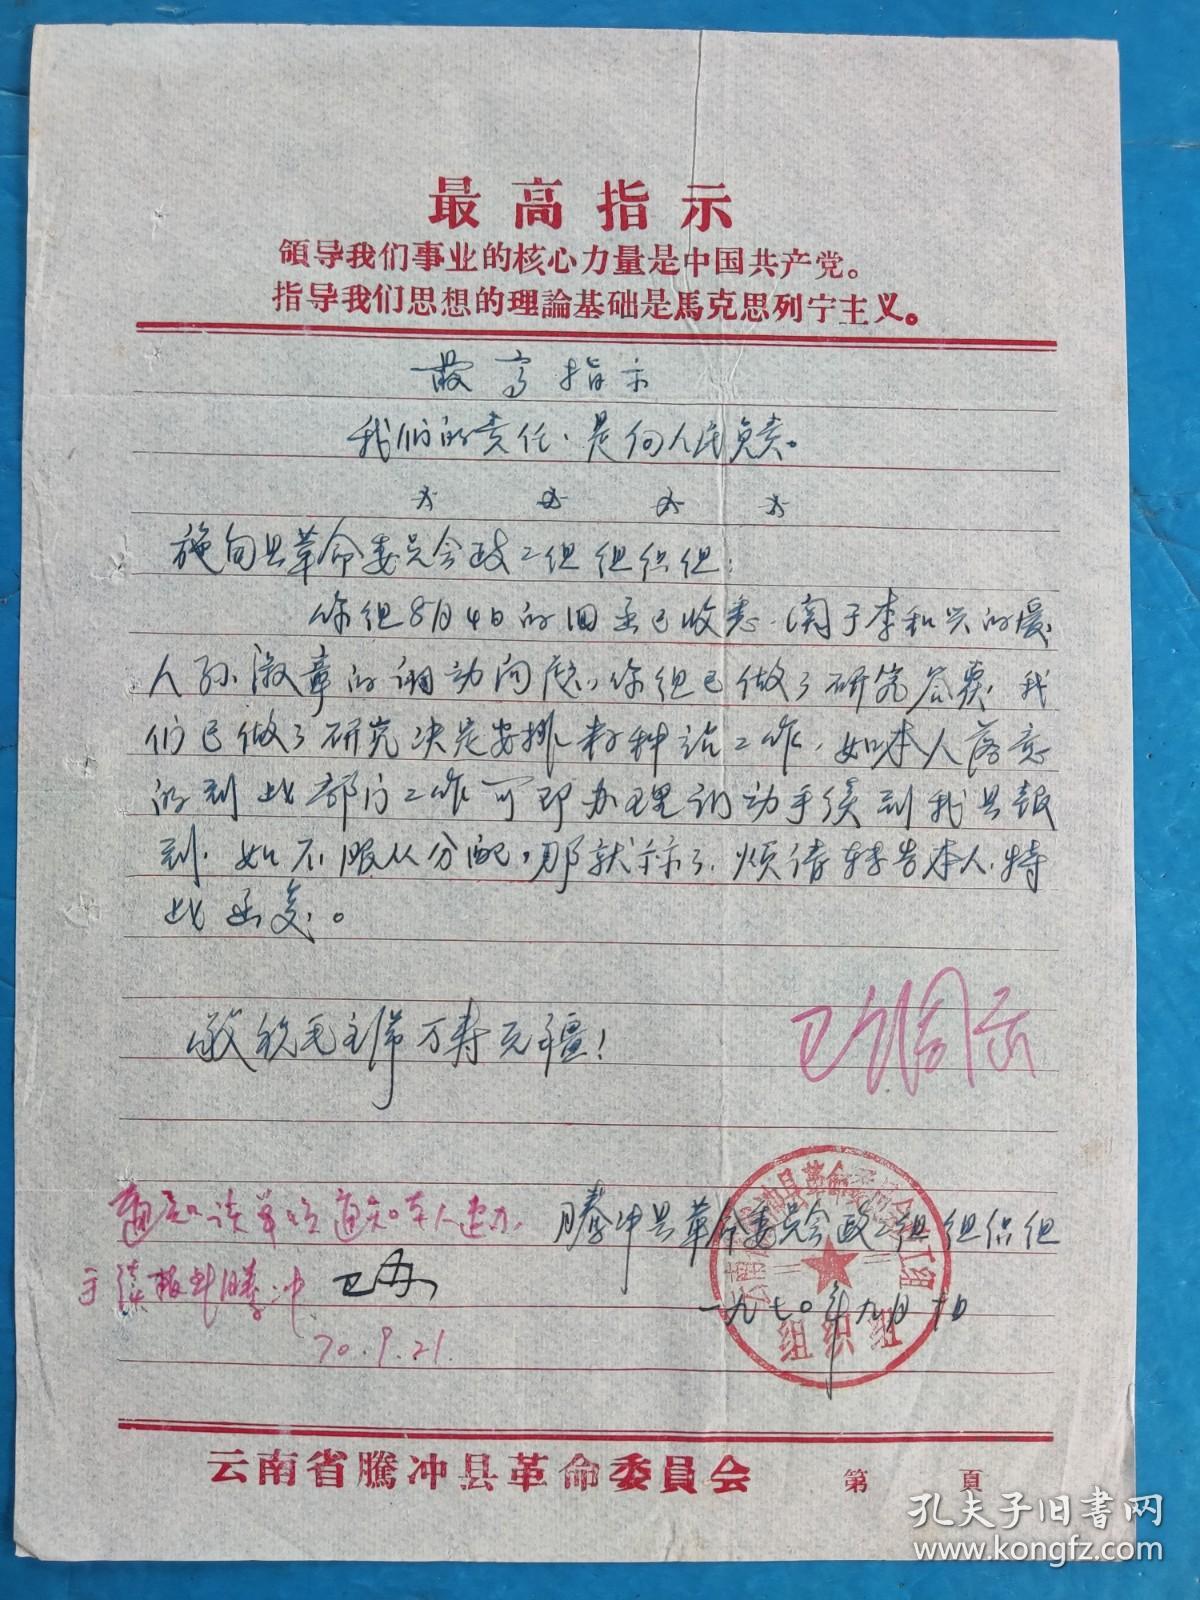 最高指示
領导我们事业的核心力量是中国共产党。
指导我们思想的理論基础是馬克思列宁主义。
最高指示
我们的责任、是向人民负责。
施甸县革命委员会政工组组织组：
你组8月4日的回函已收悉.关于李和兴的爱
人孙淑章的调动问题,你组已做了研究答复,我
们已做了研究决定安排 工作,如本人 意
的到此部门工作可即办理调动手续到我县报
到.如不服从分配,那就算了.烦请转告本人.特
此函复。
敬祝毛主席万寿无疆！
已 调
腾冲县革命委员会政工组组织组
一九七〇年九月十日
云南省腾冲县革命委员会政工组
组织组
通知该单位通知本人速办
手续报到腾冲
70.9.21.
云南省騰冲县革命委員会
第 頁
孔夫子旧书网
www.kongfz.com